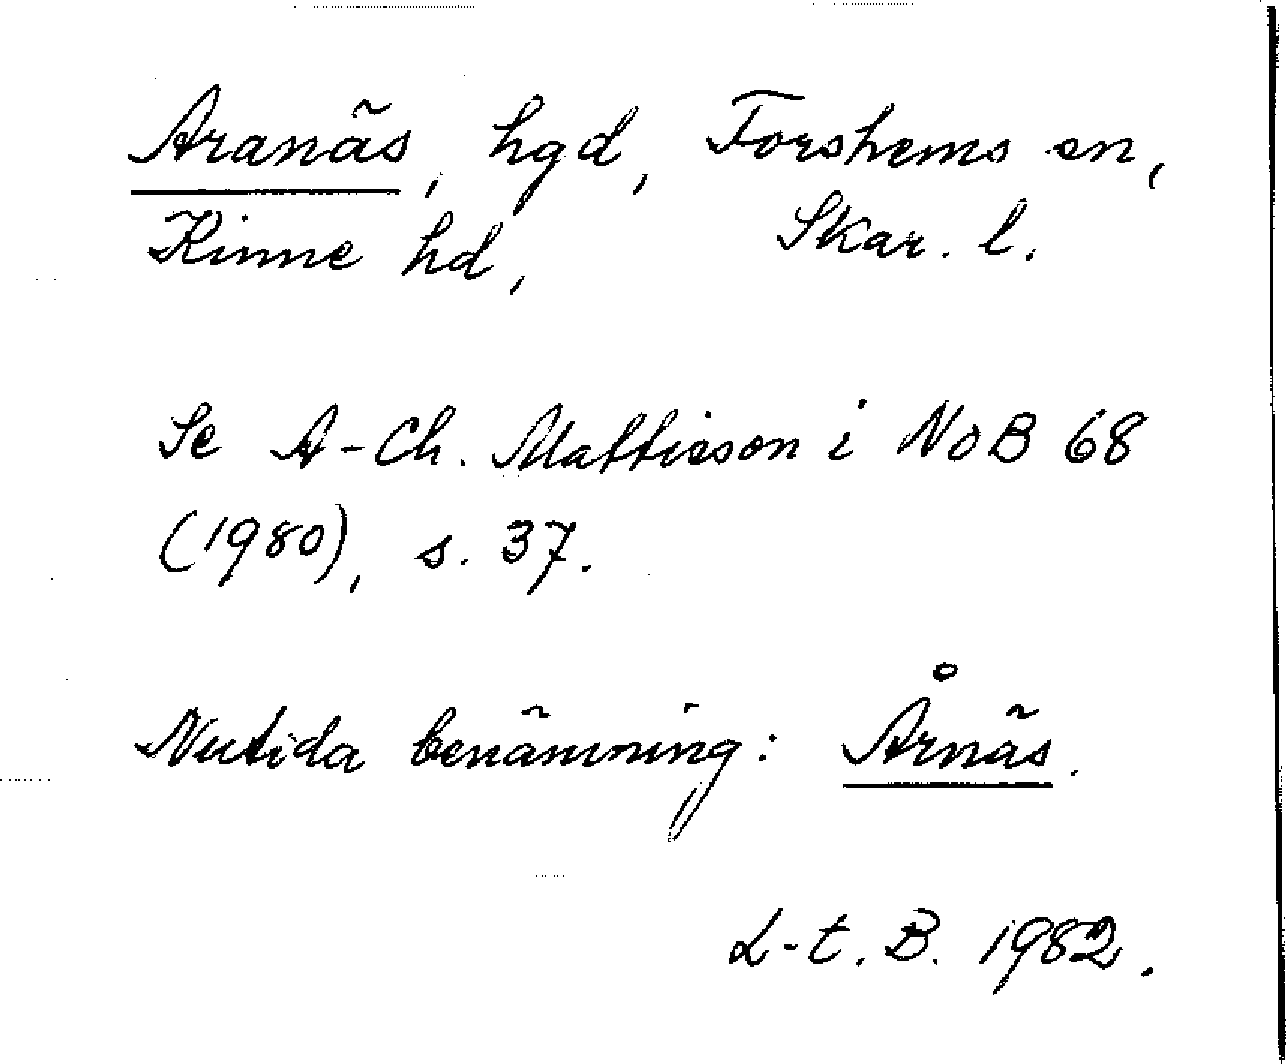 Aranäs, hgd, Forshems sn,
Kinne hd, Skar. l.
Se A-Ch. Mattisson i NoB 68
(1980), s. 37.
Nutida benämning: Årnäs.
L-t. B. 1982.